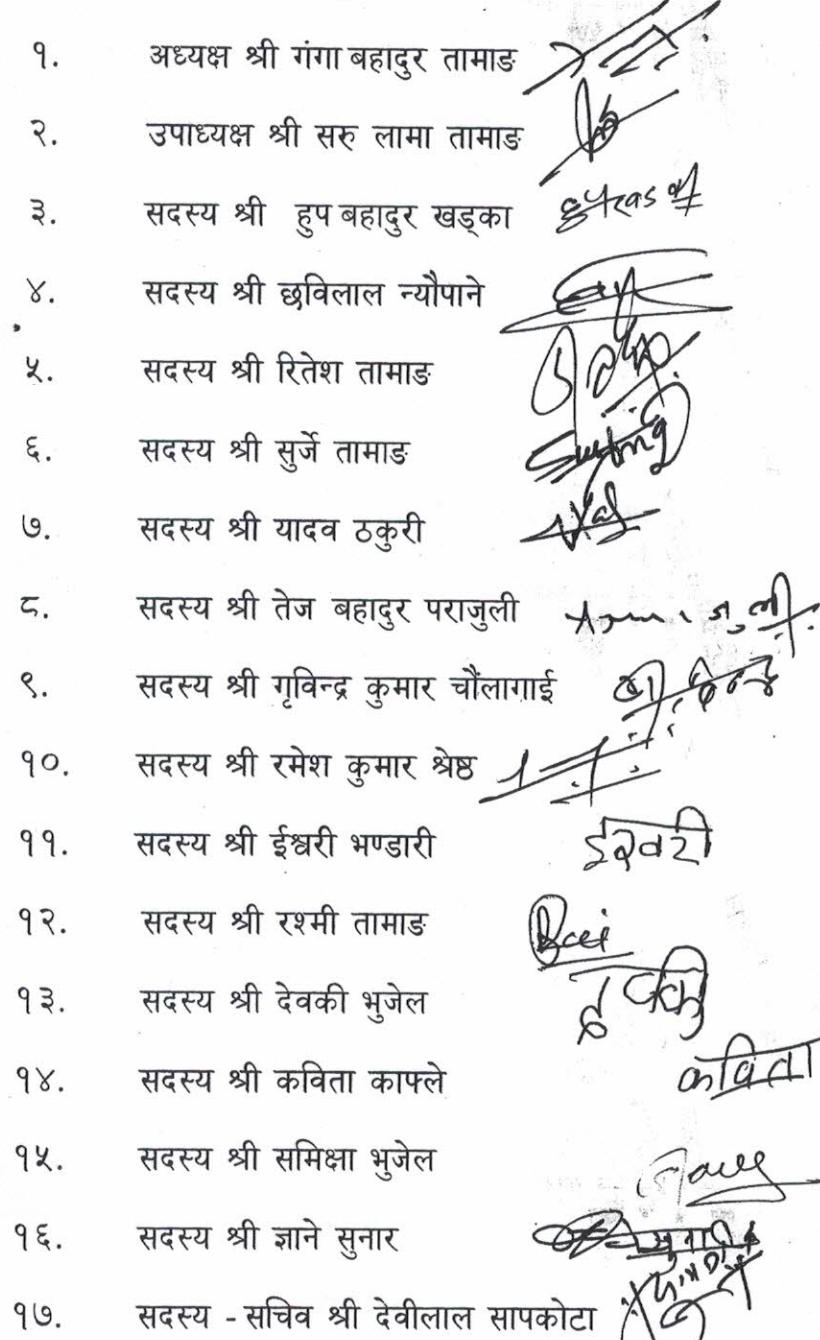 १. अध्यक्ष श्री गंगा बहादुर तामाङ
२. उपाध्यक्ष श्री सरु लामा तामाङ
३. सदस्य श्री हुप बहादुर खड्का
४. सदस्य श्री छविलाल न्यौपाने
५. सदस्य श्री रितेश तामाङ
६. सदस्य श्री सुर्जे तामाङ
७. सदस्य श्री यादव ठकुरी
८. सदस्य श्री तेज बहादुर पराजुली
९. सदस्य श्री गृविन्द्र कुमार चौंलागाई
१०. सदस्य श्री रमेश कुमार श्रेष्ठ
११. सदस्य श्री ईश्वरी भण्डारी ईश्वरी
१२. सदस्य श्री रश्मी तामाङ
१३. सदस्य श्री देवकी भुजेल देवकी
१४. सदस्य श्री कविता काफ्ले कविता
१५. सदस्य श्री समिक्षा भुजेल
१६. सदस्य श्री ज्ञाने सुनार
१७. सदस्य - सचिव श्री देवीलाल सापकोटा